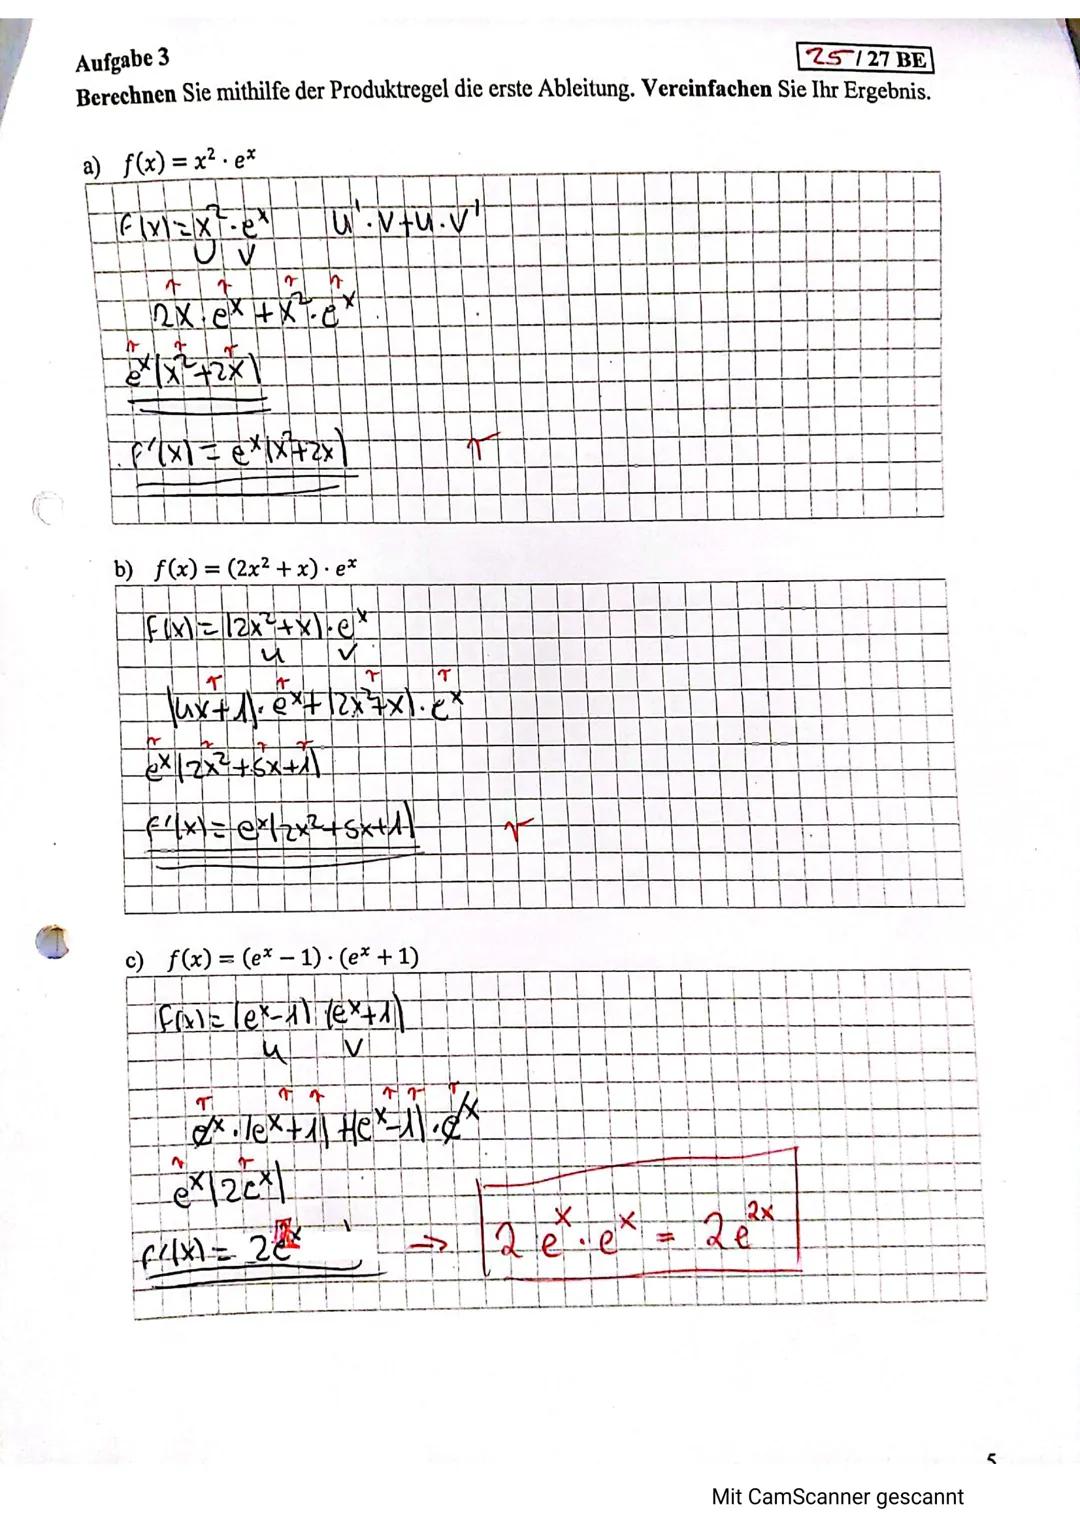 Aufgabe 3
25 / 27 BE
Berechnen Sie mithilfe der Produktregel die erste Ableitung. Vereinfachen Sie Ihr Ergebnis.
a) f(x) = x² · eˣ
f(x) = x² · eˣ   u' · v + u · v'
u v
r r r r
2x · eˣ + x² · eˣ
r r r
eˣ(x² + 2x)
f'(x) = eˣ(x² + 2x) r
b) f(x) = (2x² + x) · eˣ
f(x) = (2x² + x) · eˣ
u v
r r r r
(4x + 1) · eˣ + (2x² + x) · eˣ
r r r r
eˣ(2x² + 5x + 1)
f'(x) = eˣ(2x² + 5x + 1) r
c) f(x) = (eˣ − 1) · (eˣ + 1)
f(x) = (eˣ − 1) · (eˣ + 1)
u v
r r r r r r
eˣ · (eˣ + 1) + (eˣ − 1) · eˣ
r r
eˣ(2eˣ)
f'(x) = 2e → 2 eˣ · eˣ = 2e²ˣ
5
Mit CamScanner gescannt